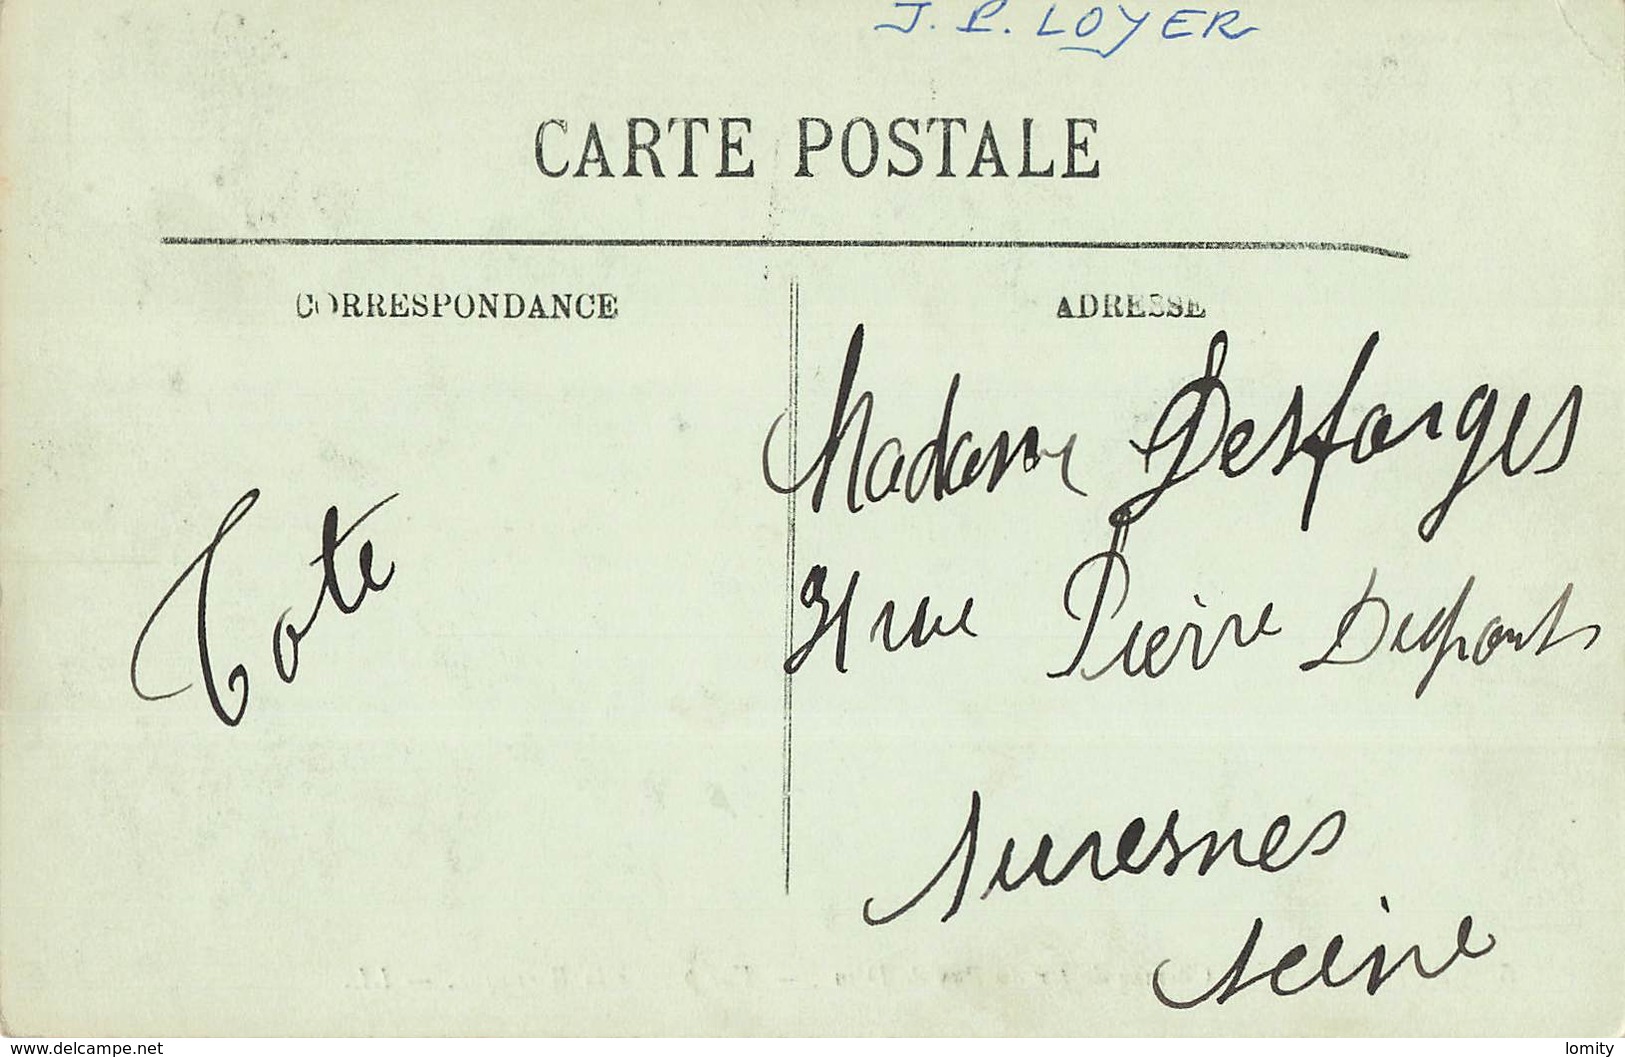 J. P. LOYER
CARTE POSTALE
CORRESPONDANCE
ADRESSE
Tote
Madame Desforges
31 rue Pierre Dupont
Suresnes
Seine
www.delcampe.net
lomity